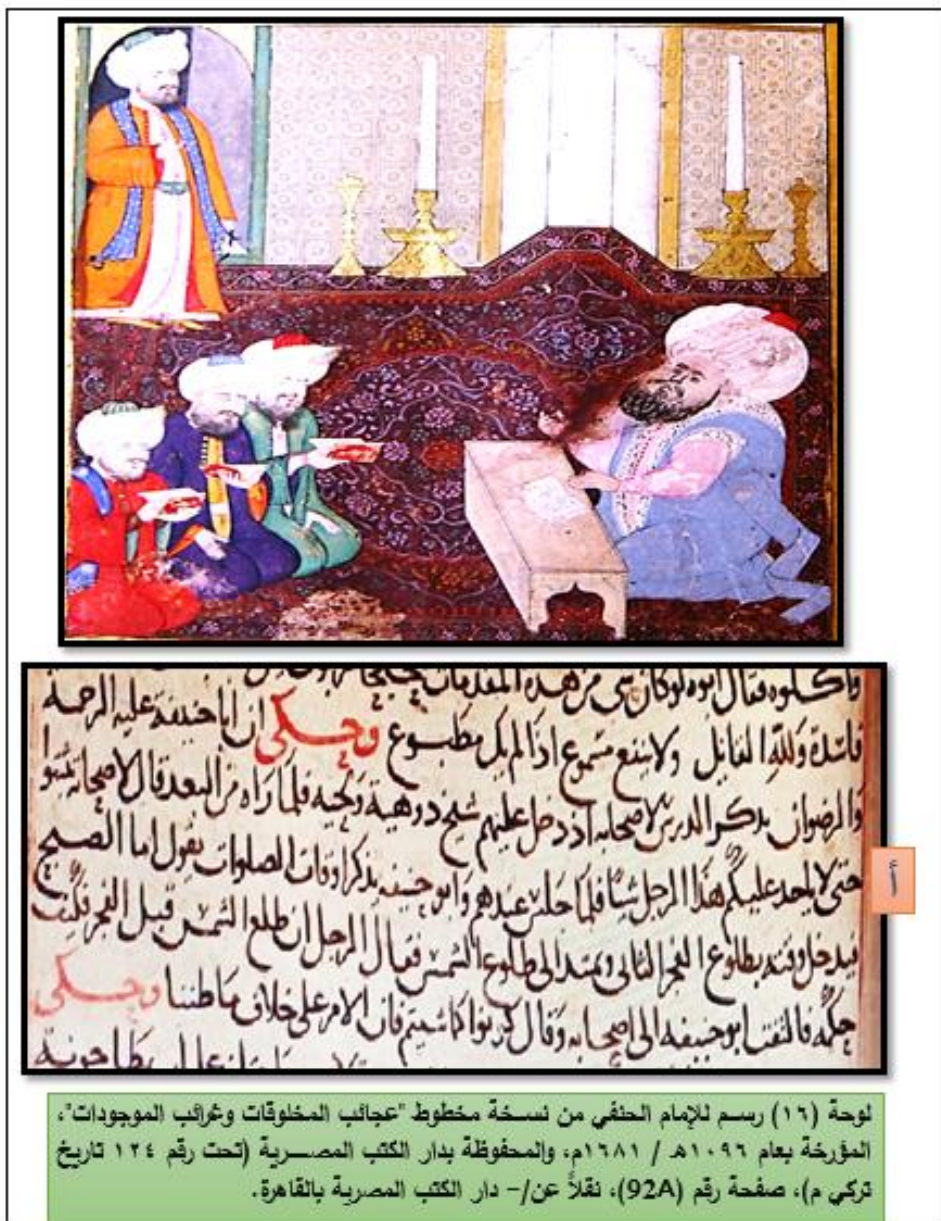 واكلوه فقال ابوه لو كان شي من هذه المقدمات
فاسدة ولله القايل ولا ينفع مسموع اذا لم يك مطبوع وحكى ان ابا حنيفة عليه الرحمة
والرضوان يذكر الدرس لاصحابه اذ دخل عليهم شيخ ذو هيبة ولحيه فلما راه من البعد قال لاصحابه
حتى لا ياخذ عليكم هذا الرجل شيا فلما جلس عندهم وابو حنيفه يذكر اوقات الصلوات يقول اما الصبح
فيدخل وقته بطلوع الفجر الثانى ويمتد الى طلوع الشمس فقال الرجل ان طلع الشمس قبل الفجر فكيف
حكمه فالتفت ابو حنيفه الى اصحابه وقال كونوا كما شيتم فان الامر على خلاف ما ظننا وحكى
أ
لوحة (١٦) رسم للإمام الحنفي من نسخة مخطوط "عجائب المخلوقات وغرائب الموجودات"،
المؤرخة بعام ١٠٩٦هـ / ١٦٨١م، والمحفوظة بدار الكتب المصرية (تحت رقم ١٢٤ تاريخ
تركي م)، صفحة رقم (92A)، نقلاً عن/- دار الكتب المصرية بالقاهرة.